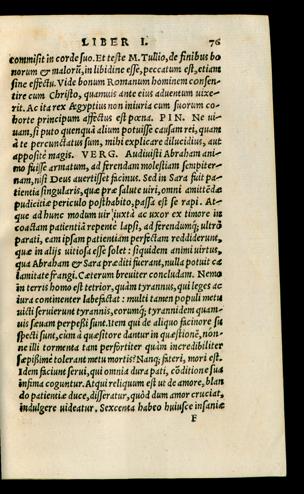 LIBER I. 76
commisit in corde suo. Et teste M. Tullio, de finibus bo
norum & malorũ, in libidine esse, peccatum est, etiam
sine effectu. Vide bonum Romanum hominem consen-
tire cum Christo, quamuis ante eius aduentum uixe-
rit. Ac ita rex Aegyptius non iniuria cum suorum co-
horte principum affectus est pœna. PIN. Ne ui-
uam, si puto quenquã alium potuisse causam rei, quam
à te percunctatus sum, mihi explicare dilucidius, aut
appositè magis. VERG. Audiuisti Abraham ani-
mo fuisse armatum, ad ferendam molestiam sempiter-
nam, nisi Deus auertisset facinus. Sed in Sara fuit pa-
tientia singularis, quæ præ salute uiri, omni amittẽdæ
pudicitiæ periculo posthabito, passa est se rapi. At-
que ad hunc modum uir iuxtà ac uxor ex timore in
coactam patientiã repentè lapsi, ad ferendumq́; ultrò
parati, eam ipsam patientiam perfectam reddiderunt,
quæ in alijs uitiosa esse solet: siquidem animi uirtus,
qua Abraham & Sara præditi fuerant, nulla potuit ca
lamitate frangi. Cæterum breuiter concludam. Nemo
in terris homo est tetrior, quàm tyrannus, qui leges ac
iura continenter labefactat: multi tamen populi metu
uicti seruierunt tyrannis, eorumq́; tyrannidem quam-
uis sæuam perpeßi sunt. Item qui de aliquo facinore su
specti sunt, cùm à quæsitore dantur in quæstionẽ, non-
ne illi tormenta tam perfortiter quàm incredibiliter
sæpißimè tolerant metu mortis? Nanq; fateri, mori est.
Idem faciunt serui, qui omnia dura pati, cõditione sua
infima coguntur. Atqui reliquum est ut de amore, blan
do patientiæ duce, disseratur, quòd dum amor cruciat,
indulgere uideatur. Sexcenta habeo huiusce insaniæ
F